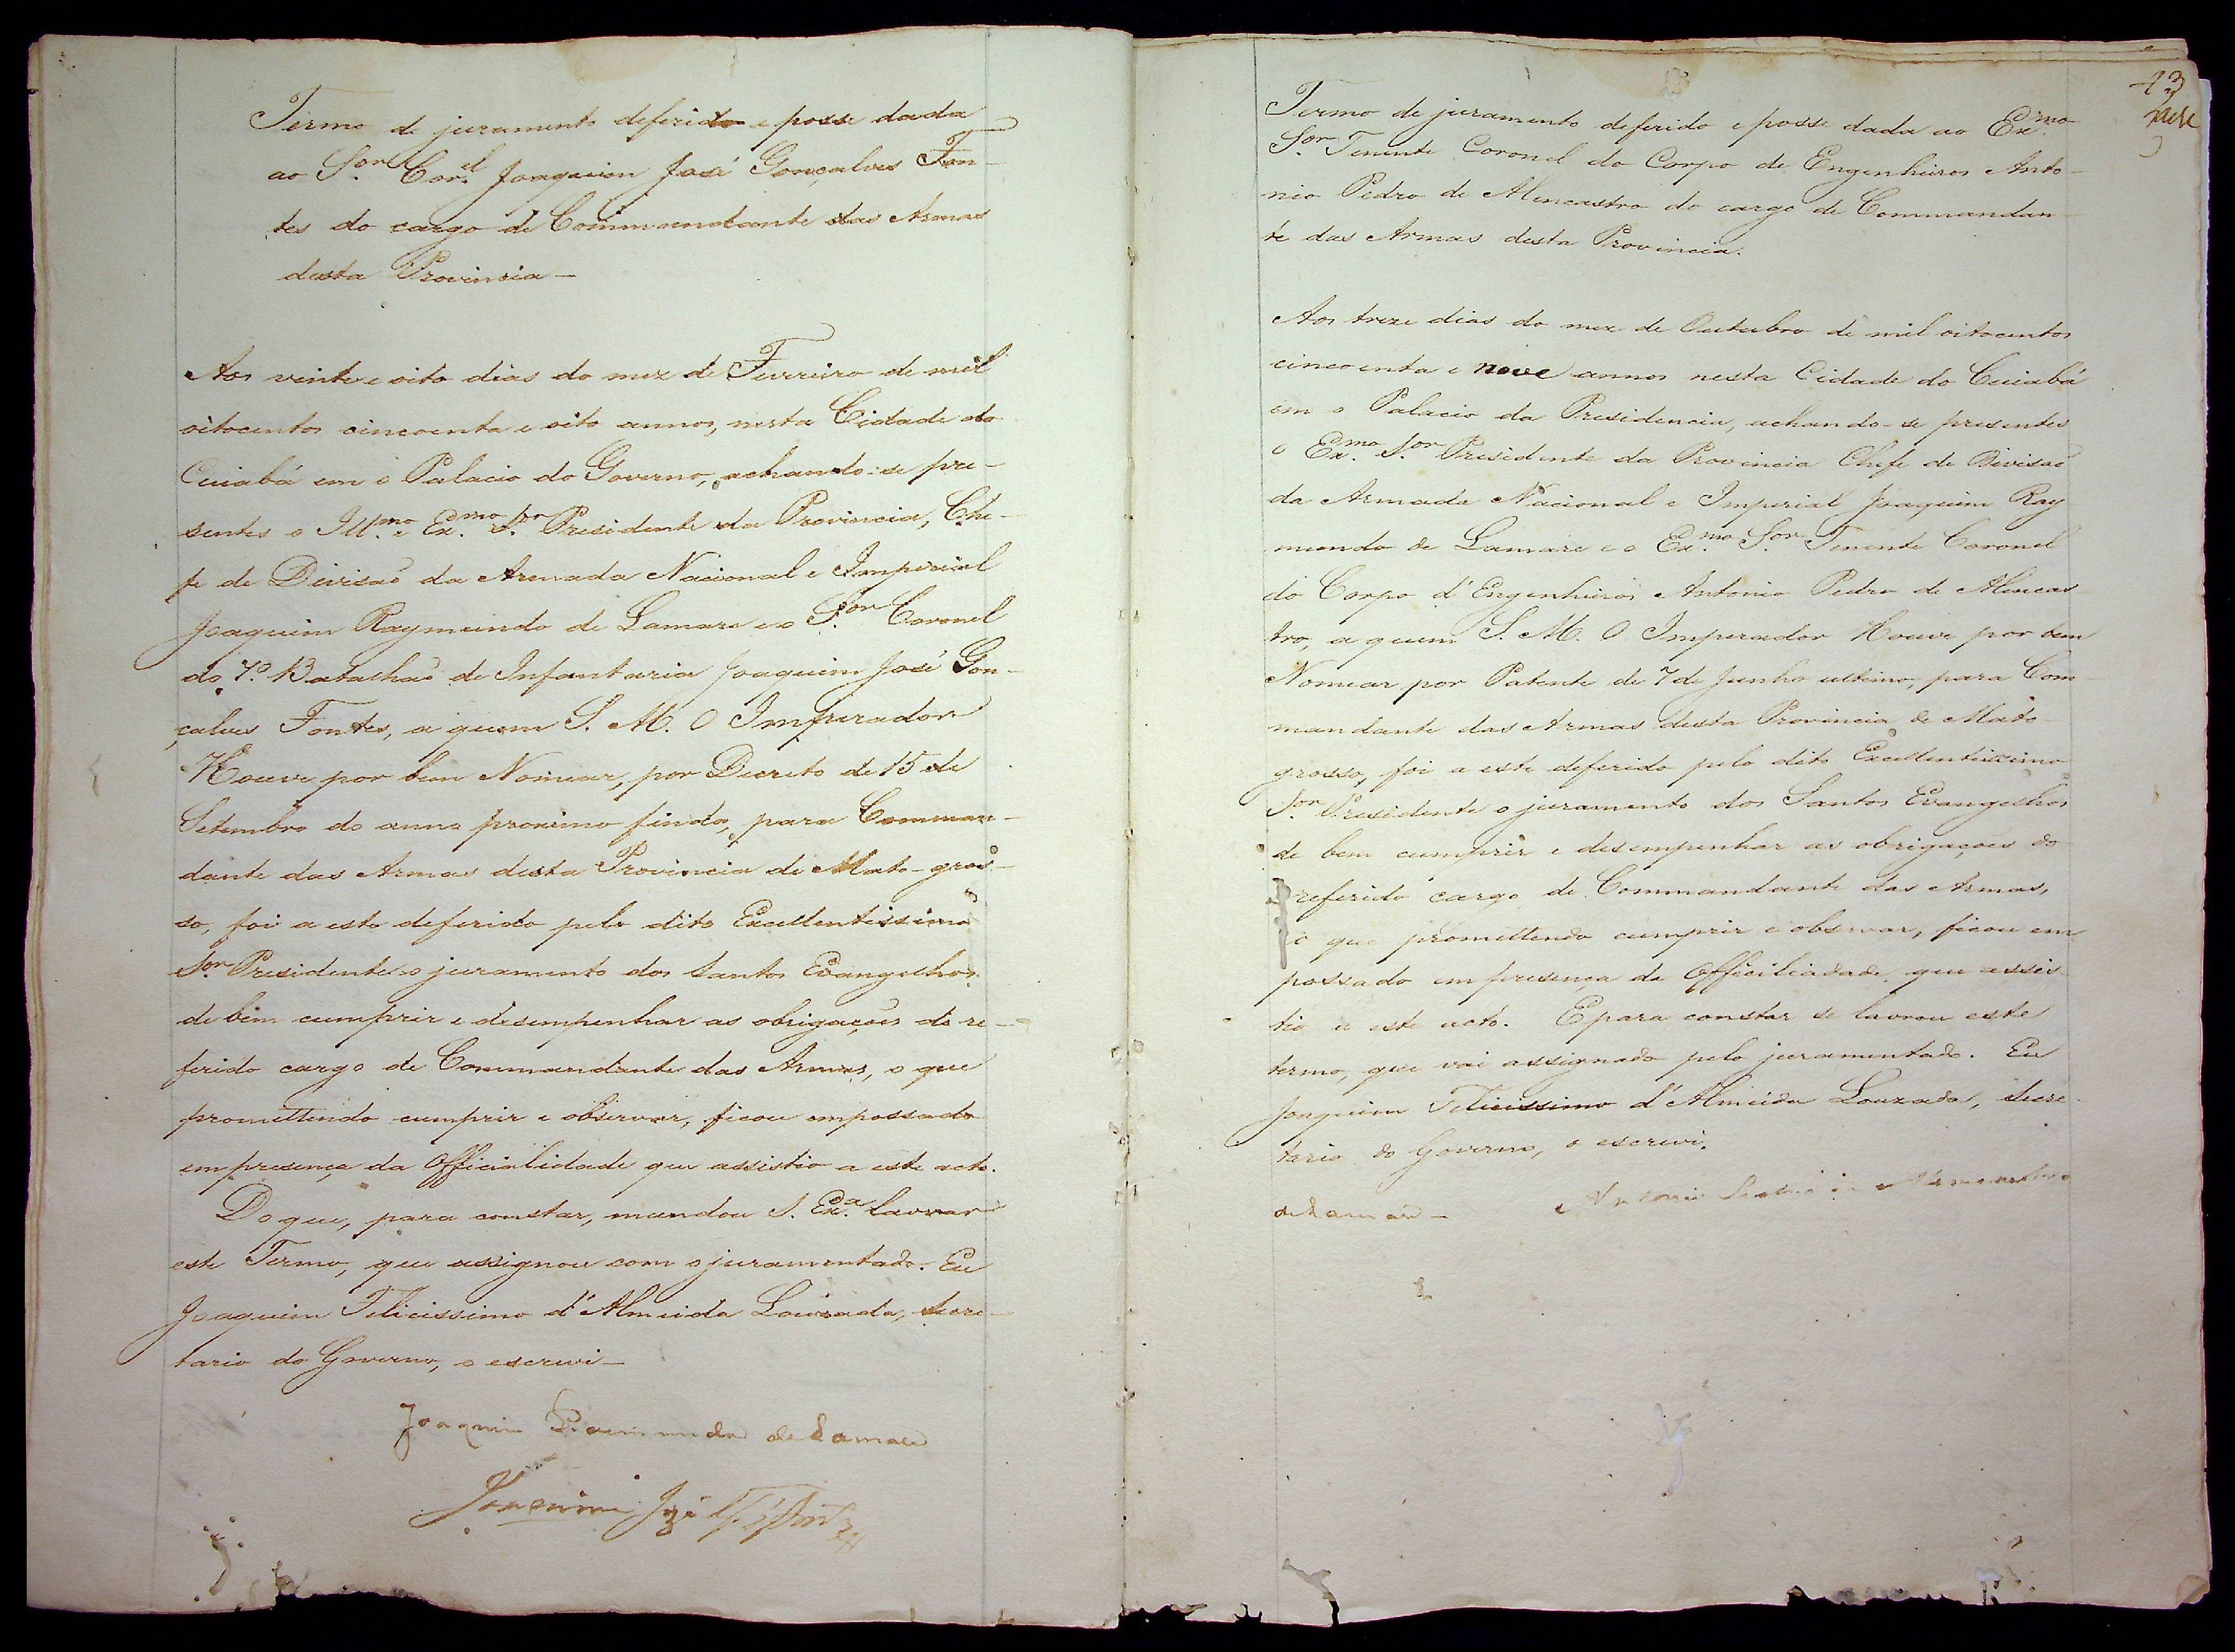 Termo de juramento deferido e posse dada
ao S.or Cor.el Joaquim José Gonçalves Fon-
tes do cargo de Commandante das Armas
desta Provincia —
Aos vinte e oito dias do mez de Fevreiro de mil
oitocentos cincoenta e oito annos, nesta Cidade do
Cuiabá em o Palacio do Governo, achando-se pre-
sentes o Ill.mo e Ex.mo S.or Presidente da Provincia, Che-
fe de Divisaõ da Armada Nacional e Imperial
Joaquim Raymundo de Lamare e o S.or Coronel
do 7.º Batalhaõ de Infantaria Joaquim José Gon-
çalves Fontes, a quem S. M. O Imperador
Houve por bem Nomear, por Decreto de 15 de
Setembro do anno proximo findo, para Comman-
dante das Armas desta Provincia de Mato-gros-
so, foi a este deferido pelo dito Excellentissimo
S.or Presidente o juramento dos Santos Evangelhos
de bem cumprir e desempenhar as obrigações do re-
ferido cargo de Commandante das Armas, o que
promettendo cumprir e observar, ficou empossado
em presença da Officialidade que assistio a este acto.
Do que, para constar, mandou S. Ex.a lavrar
este Termo, que assignou com o juramentado. Eu
Joaquim Felicissimo d'Almeida Louzada, Secre-
tario do Governo, o escrevi —
Joaquim Raimundo de Lamare
Joaquim José Glz Fontes
13
Termo de juramento deferido e posse dada ao Ex.mo
S.or Tenente Coronel do Corpo de Engenheiros Anto-
nio Pedro de Alencastro do cargo de Commandan-
te das Armas desta Provincia.
Aos treze dias do mez de Outubro de mil oitocentos
cincoenta e nove annos nesta Cidade do Cuiabá
em o Palacio da Presidencia, achando-se presentes
o Ex.mo S.or Presidente da Provincia Chefe de Divisaõ
da Armada Nacional e Imperial Joaquim Ray
mundo de Lamare e o Ex.mo S.or Tenente Coronel
do Corpo d'Engenheiros Antonio Pedro de Alencas
tro, a quem S. M. O Imperador Houve por bem
Nomear por Patente de 7 de Junho ultimo, para Com
mandante das Armas desta Provincia de Mato-
grosso, foi a este deferido pelo dito Excellentissimo
S.or Presidente o juramento dos Santos Evangelhos
de bem cumprir e desempenhar as obrigações do
referido cargo de Commandante das Armas,
o que promettendo cumprir e observar, ficou em
possado em presença da Officiliadade que assis
tio a este acto. E para constar se lavrou este
termo, que vai assignado pelo juramentado. Eu
Joaquim Felicissimo d'Almeida Louzada, Secre-
tario do Governo, o escrevi.
de Lamare — Antonio Pedro de Alencastro